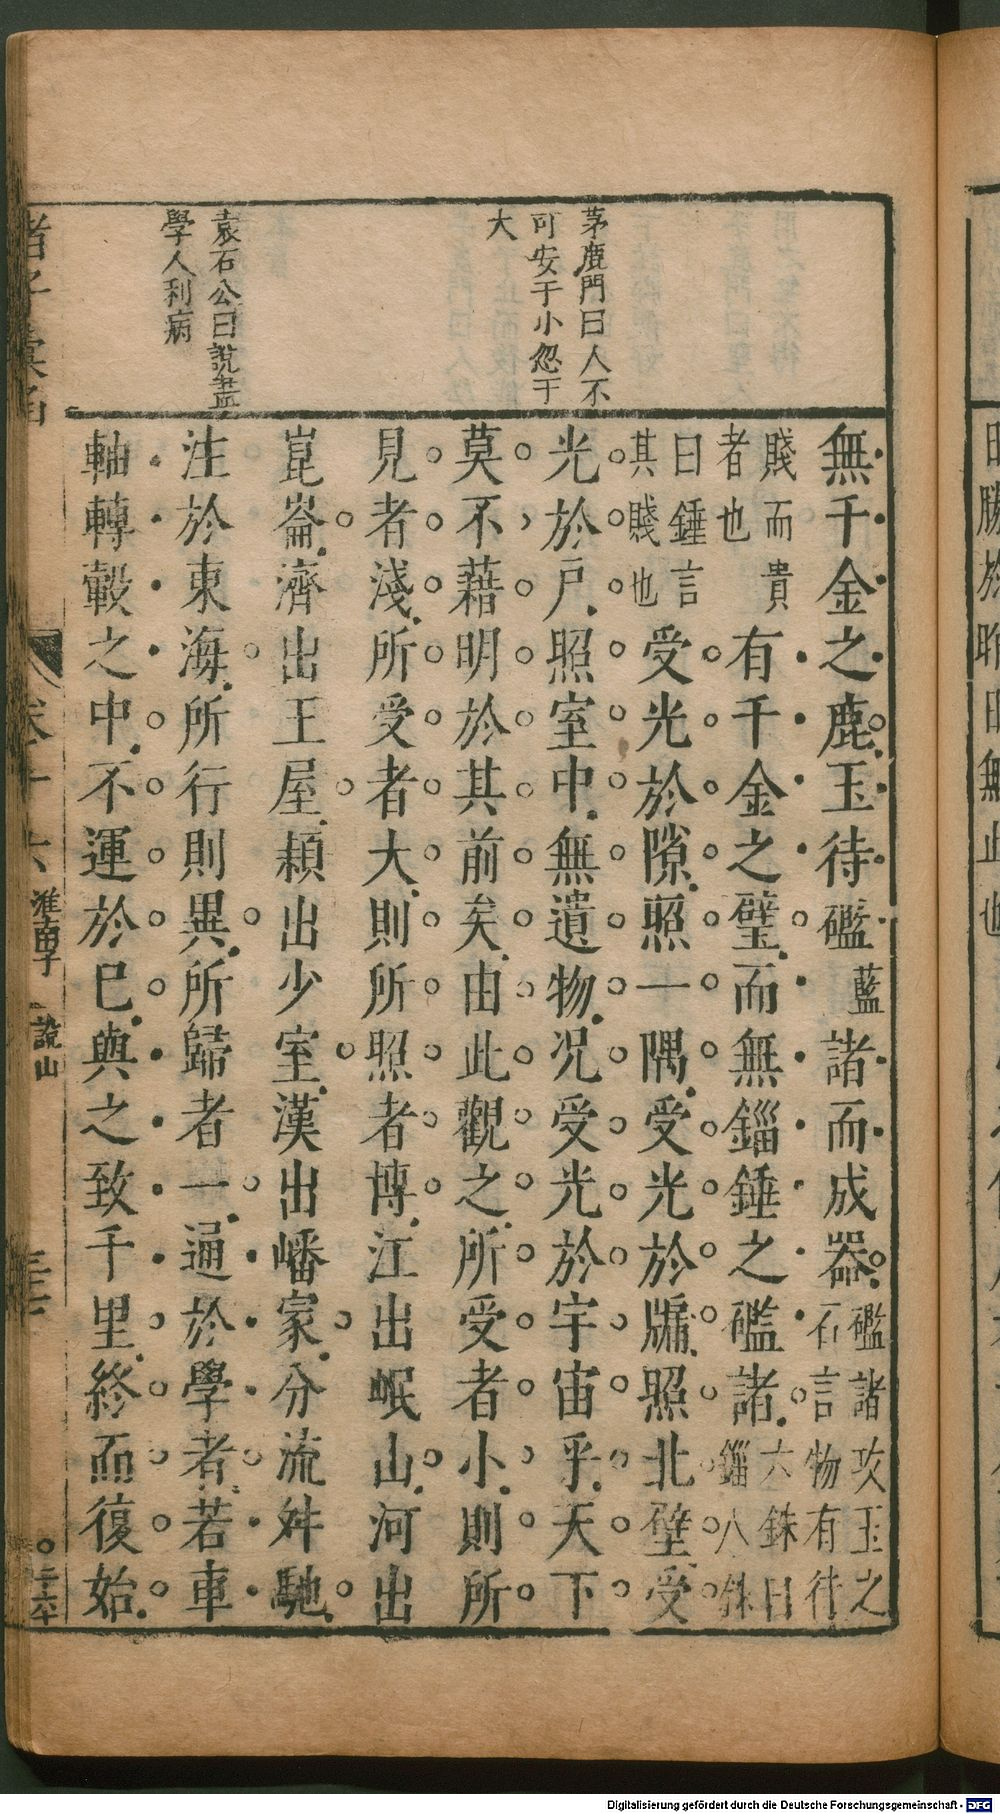 茅鹿門曰人不
可安于小忽于
大
袁石公曰說盡
學人利病
無千金之鹿玉待礛藍諸而成器礛諸攻玉之石言物有待
賤而貴者也有千金之璧而無錙錘之礛諸六銖曰錙八銖
曰錘言其賤也受光於隙照一隅受光於牖照北壁受
光於戶照室中無遺物况受光於宇宙乎天下
莫不藉明於其前矣由此觀之所受者小則所
見者淺所受者大則所照者博江出岷山河出
崑崙濟出王屋潁出少室漢出嶓冢分流舛馳
注於東海所行則異所歸者一通於學者若車
軸轉轂之中不運於巳與之致千里終而復始
淮南子 說山
二十六
日勝於昨日無此也
Digitalisierung gefördert durch die Deutsche Forschungsgemeinschaft - DFG